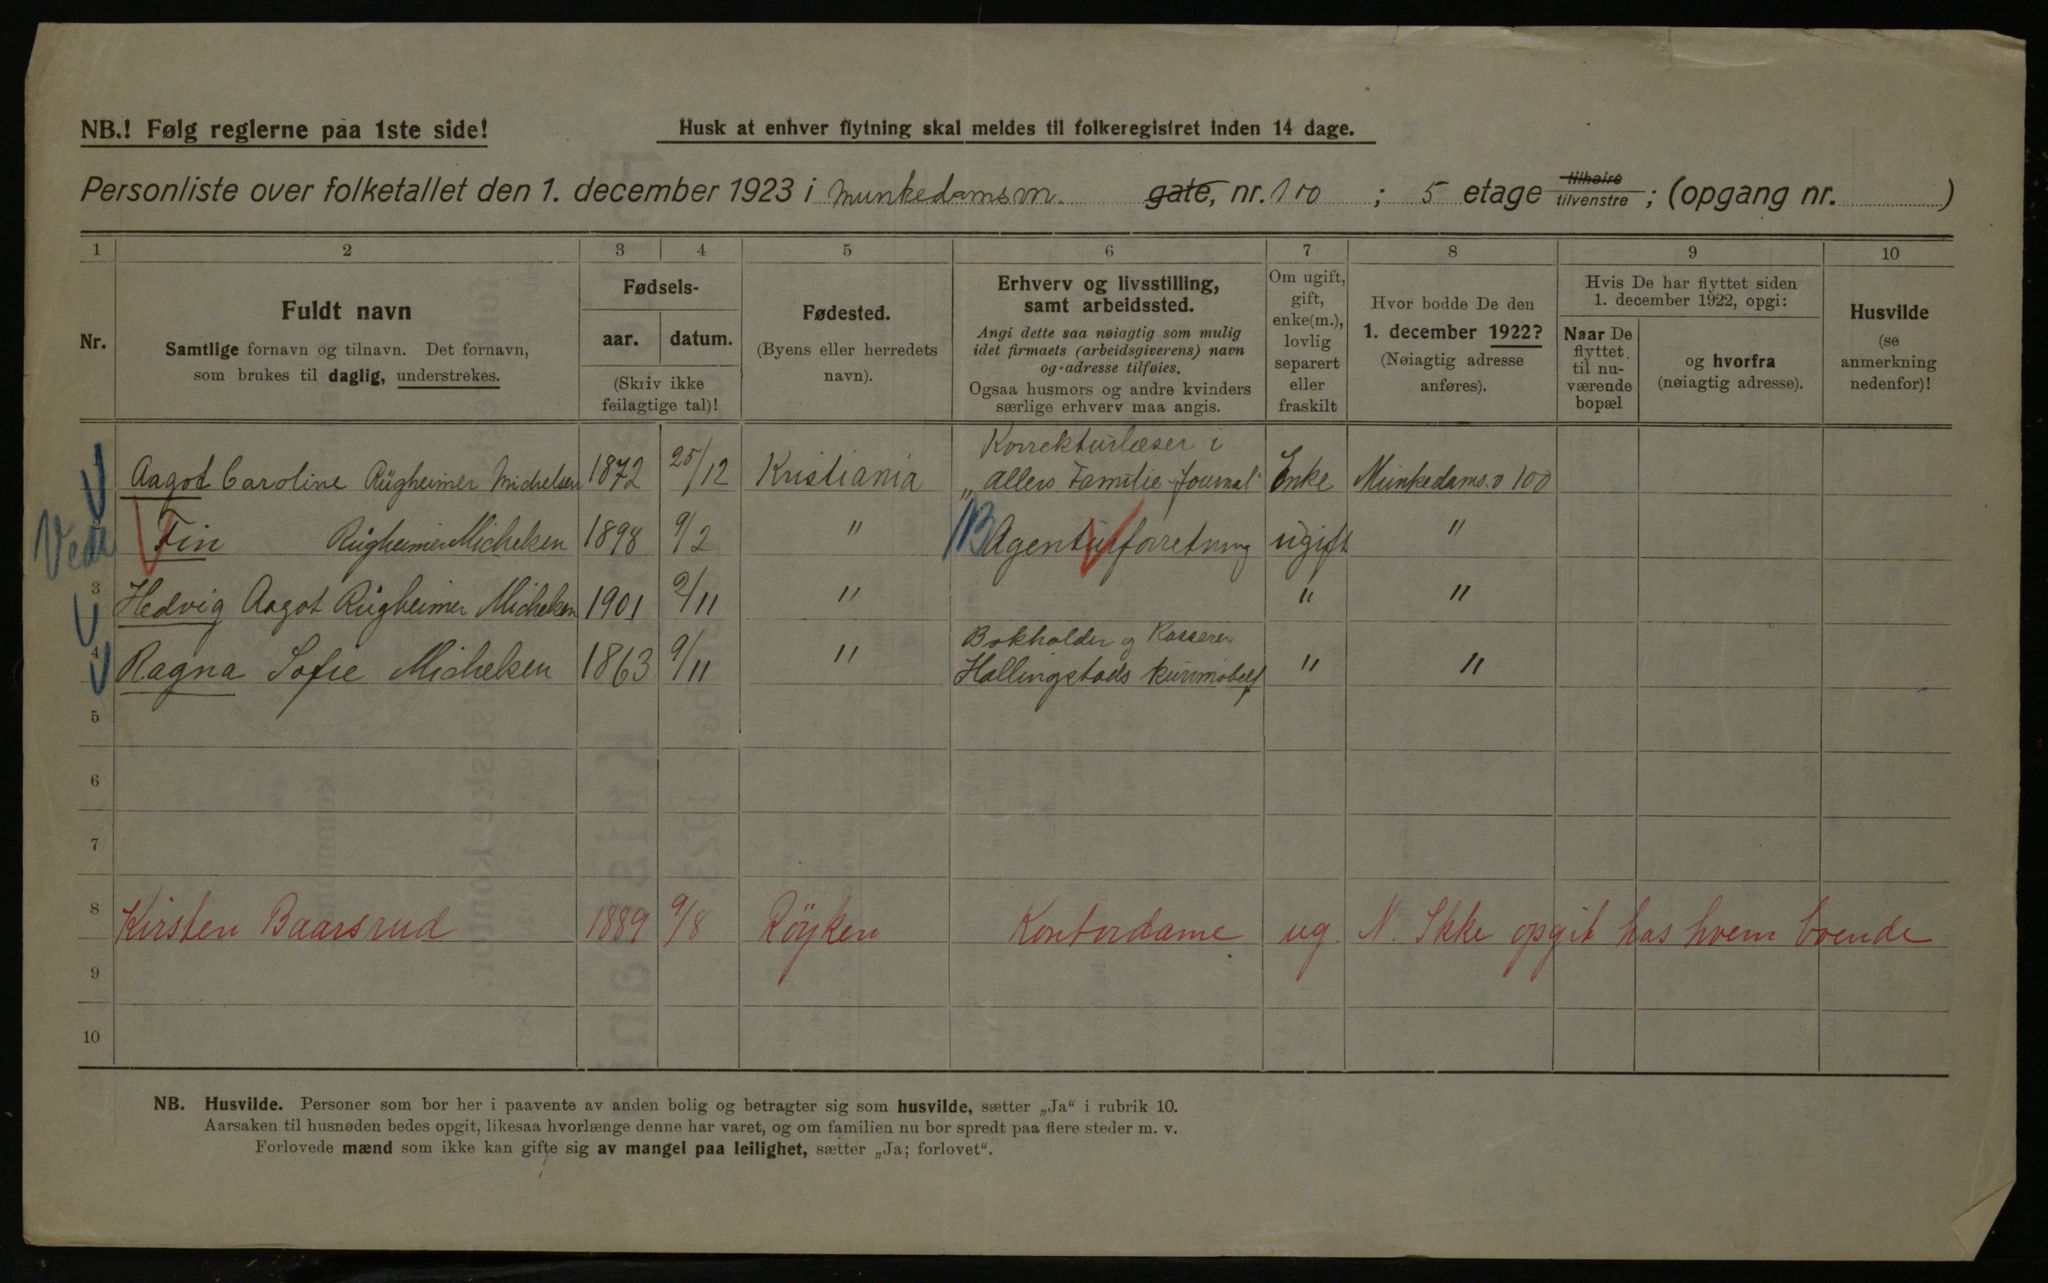 NB.! Følg reglerne paa 1ste side!
Husk at enhver flytning skal meldes til folkeregistret inden 14 dage.
Personliste over folketallet den 1. december 1923 i Munkedamsvn. gate, nr. 100 ; 5 etage tilhøire tilvenstre ; (opgang nr. )
1 2 3 4 5 6 7 8 9 10
Nr.
Fuldt navn
Samtlige fornavn og tilnavn. Det fornavn,
som brukes til daglig, understrekes.
Fødsels-
aar. datum.
(Skriv ikke
feilagtige tal)!
Fødested.
(Byens eller herredets
navn).
Erhverv og livsstilling,
samt arbeidssted.
Angi dette saa nøiagtig som mulig
idet firmaets (arbeidsgiverens) navn
og adresse tilføies.
Ogsaa husmors og andre kvinders
særlige erhverv maa angis.
Om ugift,
gift,
enke(m.),
lovlig
separert
eller
fraskilt
Hvor bodde De den
1. december 1922?
(Nøiagtig adresse
anføres).
Hvis De har flyttet siden
1. december 1922, opgi:
Naar De
flyttet
til nu-
værende
bopæl
og hvorfra
(nøiagtig adresse).
Husvilde
(se
anmerkning
nedenfor)!
Korrekturlæser i
Aagot Caroline Rügheimer Michelsen 1872 25/12 Kristiania „Allers Familie-Journal" Enke Munkedams.v 100
Fin Rügheimer Michelsen 1898 9/2 " Agenturforretning ugift "
3 Hedvig Aagot Rügheimer Michelsen 1901 2/11 " " "
Bokholder og Kasserer
4 Ragna Sofie Michelsen 1863 9/11 " Hallingstads " "
5
6
7
8 Kirsten Baarsrud 1889 9/8 Röyken Kontordame ug. N. Ikke opgit hos hvem boende
9
10
NB. Husvilde. Personer som bor her i paavente av anden bolig og betragter sig som husvilde, sætter „Ja" i rubrik 10.
Aarsaken til husnøden bedes opgit, likesaa hvorlænge denne har varet, og om familien nu bor spredt paa flere steder m. v.
Forlovede mænd som ikke kan gifte sig av mangel paa leilighet, sætter „Ja; forlovet".